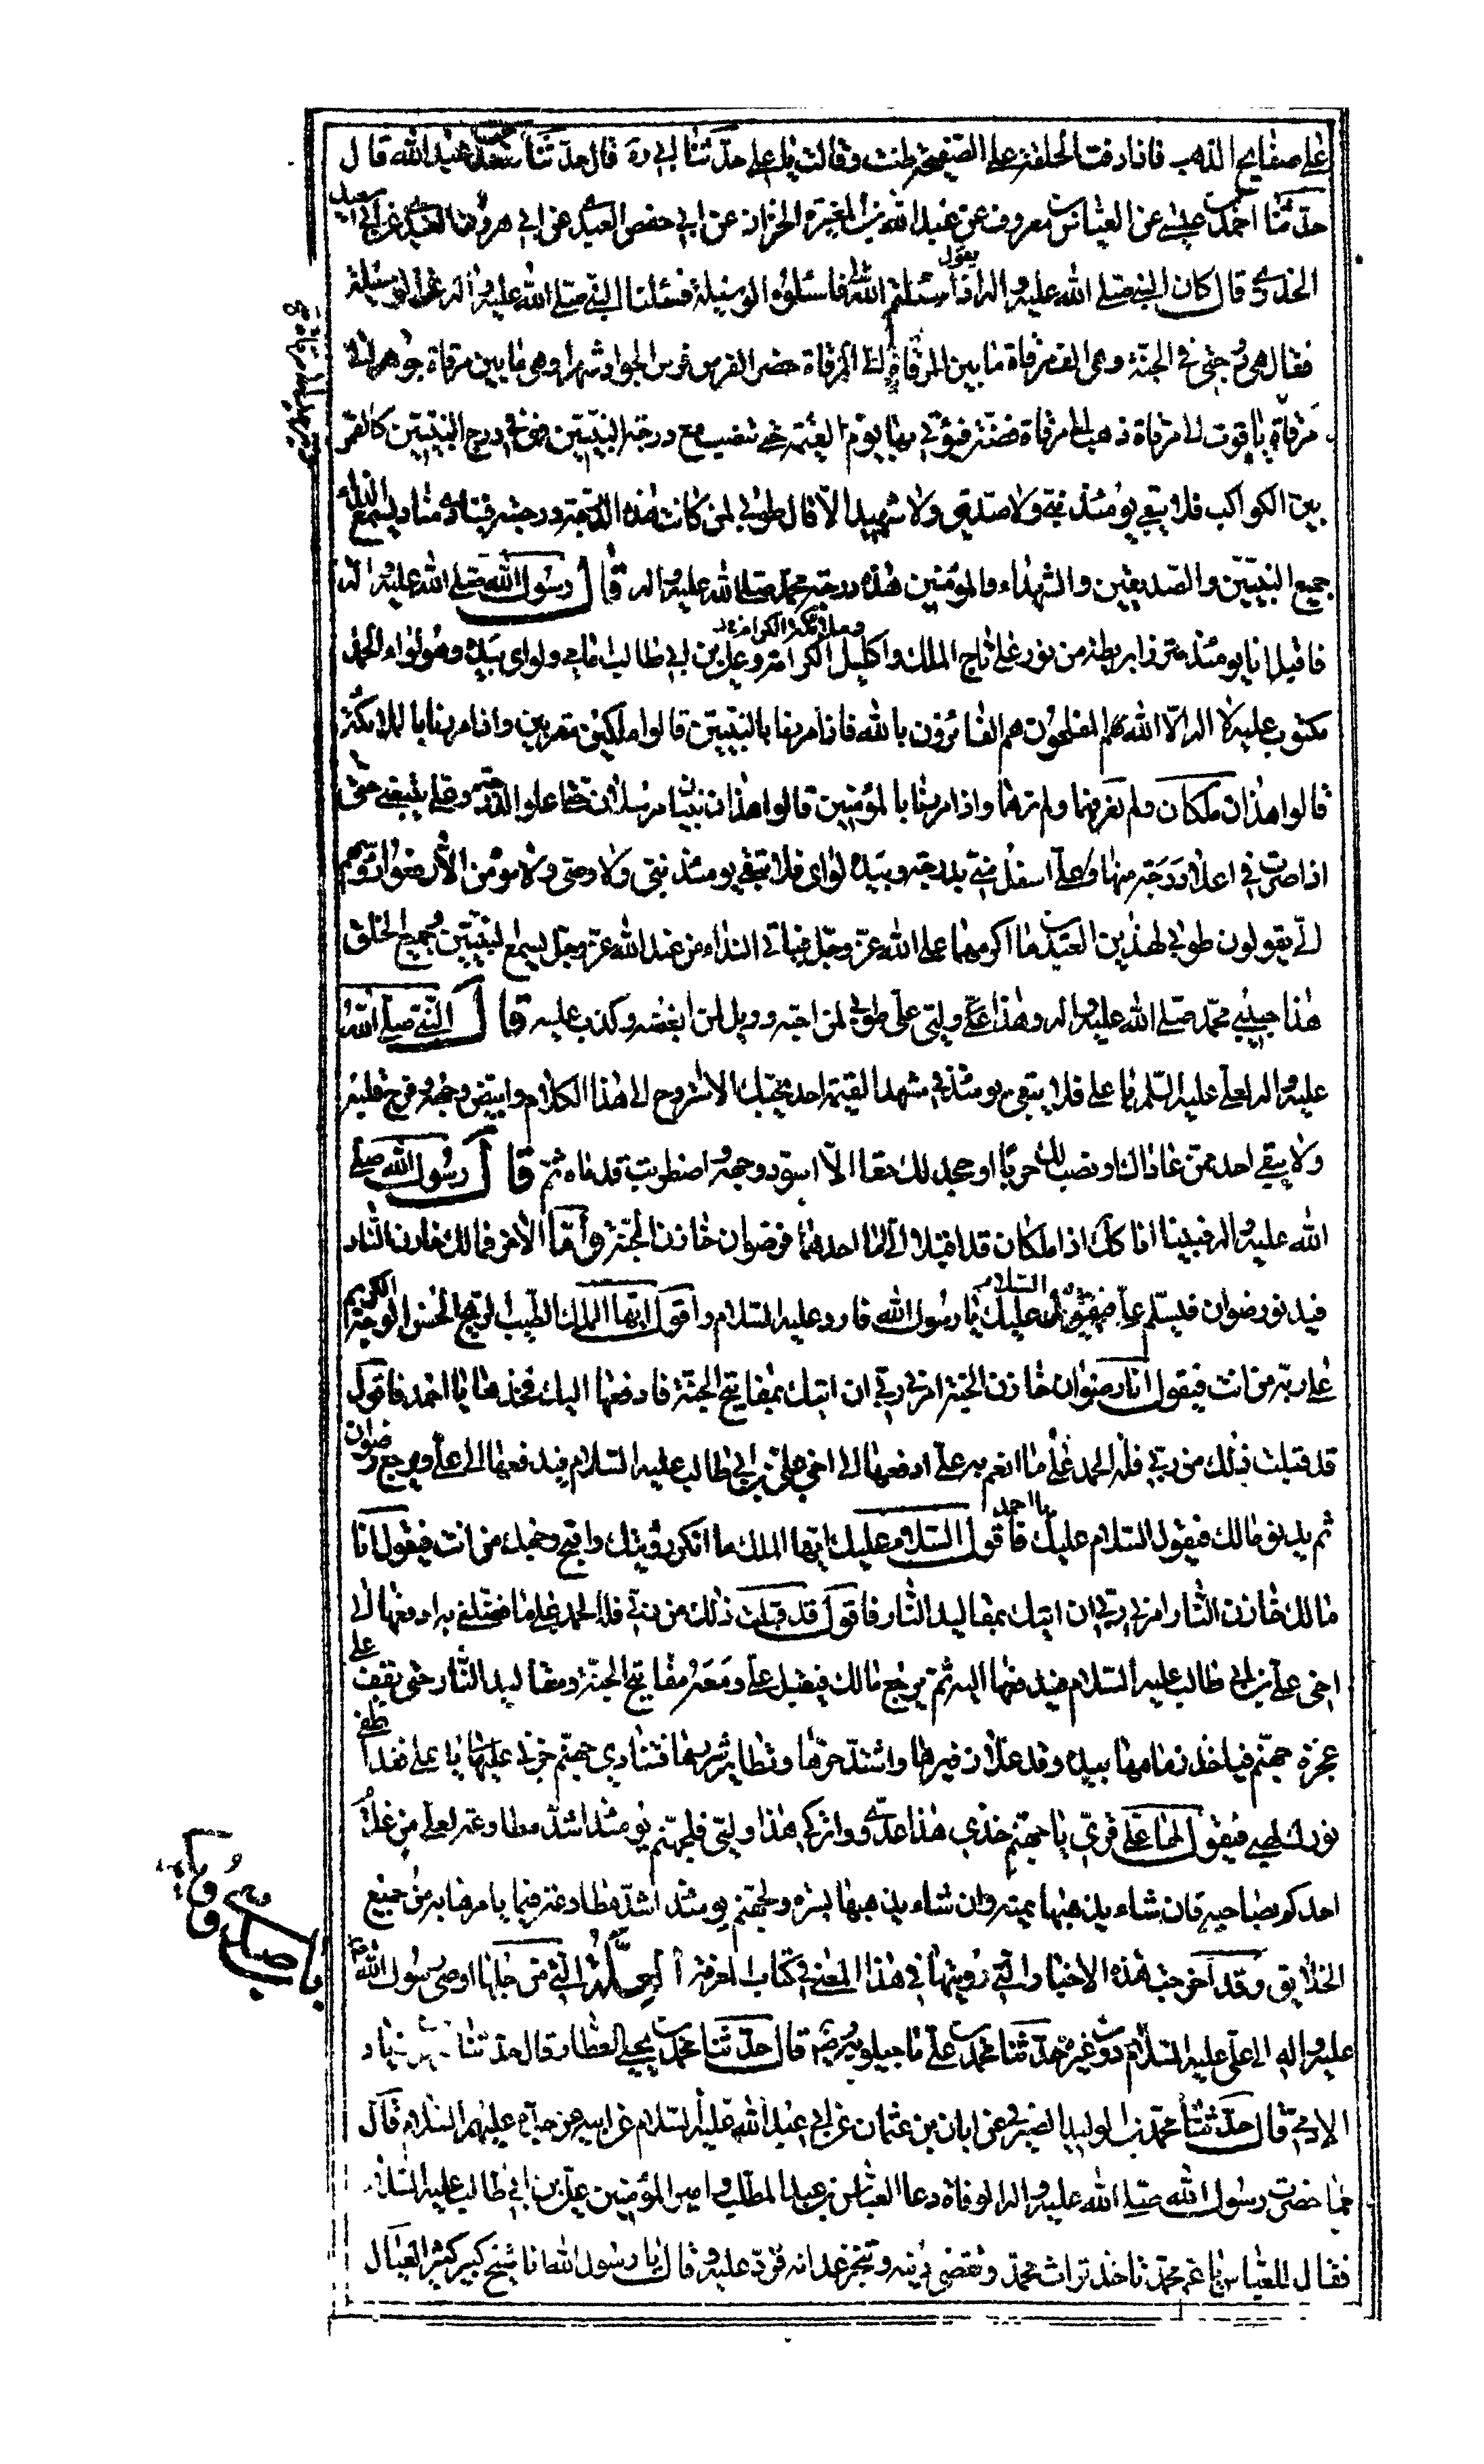 على صفايح الذهب فاذا دقت الحلقة على الصفيحة طنت وقالت يا على حدثنا ابى ره قال حدثنا سعد بن عبد الله قال
حدثنا احمد بن عيسى عن العباس بن معروف عن عبد الله بن المغيرة الخزاز عن ابى حفص العبدى عن ابى هرون العبدى عن ابى سعيد
الخدرى قال كان النبى صلى الله عليه واله يقول اذا سئلتم الله لى فاسئلوه الوسيلة فسئلنا النبى صلى الله عليه واله عن الوسيلة
فقال هى درجتى فى الجنة وهى الف مرقاة ما بين المرقاة الى المرقاة حضر الفرس الجواد شهرا وهى ما بين مرقاة جوهر الى
مرقاة ياقوت الى مرقاة ذهب الى مرقاة فضة فيؤتى بها يوم القيمة حتى تنصب مع درجة النبيين فهى فى درج النبيين كالقمر
بين الكواكب فلا يبقى يومئذ نبى ولا صديق ولا شهيد الا قال طوبى لمن كانت هذه الدرجة درجته فينادى مناد يسمع النداء
جميع النبيين والصديقين والشهداء والمؤمنين هذه درجة محمد صلى الله عليه واله قال رسول الله صلى الله عليه واله
فاقبل انا يومئذ متزرا بريطة من نور على تاج الملك واكليل الكرامة وعلى بن ابى طالب امامى ولواى بيده وهو لواء الحمد
مكتوب عليه لا اله الا الله هم المفلحون هم الفائزون بالله فاذا مررنا بالنبيين قالوا ملكين مقربين واذا مررنا بالملائكة
قالوا هذان ملكان ولم نعرفهما ولم نرهما واذا مررنا بالمؤمنين قالوا هذان نبيان مرسلان حتى اعلوا الدرجة وعلى يتبعنى حتى
اذا صرت فى اعلا درجة منها وعلى اسفل منى بدرجة وبيده لواى فلا يبقى يومئذ نبى ولا وصى ولا مؤمن الا رفعوا رؤسهم
الى يقولون طوبى لهذين العبدين ما اكرمهما على الله عز وجل فياتى النداء من عند الله عز وجل يسمع النبيين وجميع الخلق
هذا حبيبى محمد صلى الله عليه واله وهذا على وليى على طوبى لمن احبه وويل لمن ابغضه وكذب عليه قال النبى صلى الله
عليه واله لعلى عليه السلم يا على فلا يبقى يومئذ فى مشهد القيمة احد يحبك الا استروح الى هذا الكلام وابيض وجهه وفرح قلبه
ولا يبقى احد ممن عاداك او نصب لك حربا او جحد لك حقا الا اسود وجهه واضطربت قدماه ثم قال رسول الله صلى
الله عليه واله فبينا انا كذلك اذا ملكان قد اقبلا الى اما احدهما فرضوان خازن الجنة واما الاخر فمالك خازن النار
فيدنو رضوان فيسلم على فيقول السلام عليك يا رسول الله فارد عليه السلام واقول ايها الملك الطيب الريح الحسن الوجه الكريم
على ربه من انت فيقول انا رضوان خازن الجنة امرنى ربى ان اتيك بمفاتيح الجنة فادفعها اليك فخذها يا احمد فاقول
قد قبلت ذلك من ربى فله الحمد على ما انعم به على ادفعها الى اخى على بن ابى طالب عليه السلام فيدفعها الى على ويرجع رضوان
ثم يدنو مالك فيقول السلام عليك يا احمد فاقول السلام عليك ايها الملك ما انكر رؤيتك واقبح وجهك من انت فيقول انا
مالك خازن النار امرنى ربى ان اتيك بمقاليد النار فاقول قد قبلت ذلك من ربى فله الحمد على ما فضلنى به ادفعها الى
اخى على بن ابى طالب عليه السلام فيدفعها اليه ثم يرجع مالك فيقبل على ومعه مفاتيح الجنة ومقاليد النار حتى يقف على
عجزة جهنم فياخذ زمامها بيده وقد علا زفيرها واشتد حرها وتطاير شررها فتنادى جهنم جزنى يا على فقد اطفى
نورك لهبى فيقول لها على قرى يا جهنم خذى هذا عدوى واتركى هذا وليى فلجهنم يومئذ اشد مطاوعة لعلى من غلام
احدكم لصاحبه فان شاء يذهبها يمنه وان شاء يذهبها يسره ولجهنم يومئذ اشد مطاوعة فيما يامرها به من جميع
الخلايق وقد اخرجت هذه الاخبار التى رويتها فى هذا المعنى فى كتاب المعرفة العلة التى من جلها اوصى رسول الله صلى
عليه واله الى على عليه السلام دون غيره حدثنا محمد بن على ماجيلويه رضى قال حدثنا محمد بن يحيى العطار قال حدثنا سهل بن زياد
الادمى قال حدثنا محمد بن الوليد الصيرفى عن ابان بن عثمان عن ابى عبد الله عليه السلام عن ابيه عن جده عليهم السلام قال
لما حضرت رسول الله صلى الله عليه واله الوفاة دعا العباس بن عبد المطلب وامير المؤمنين على بن ابى طالب عليه السلام
فقال للعباس يا عم محمد تاخذ تراث محمد وتقضى دينه وتنجز عداته فرد عليه وقال يا رسول الله انا شيخ كبير كثير العيال